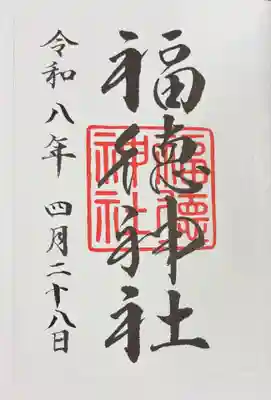 福徳神社
福徳神社
令和八年 四月二十八日